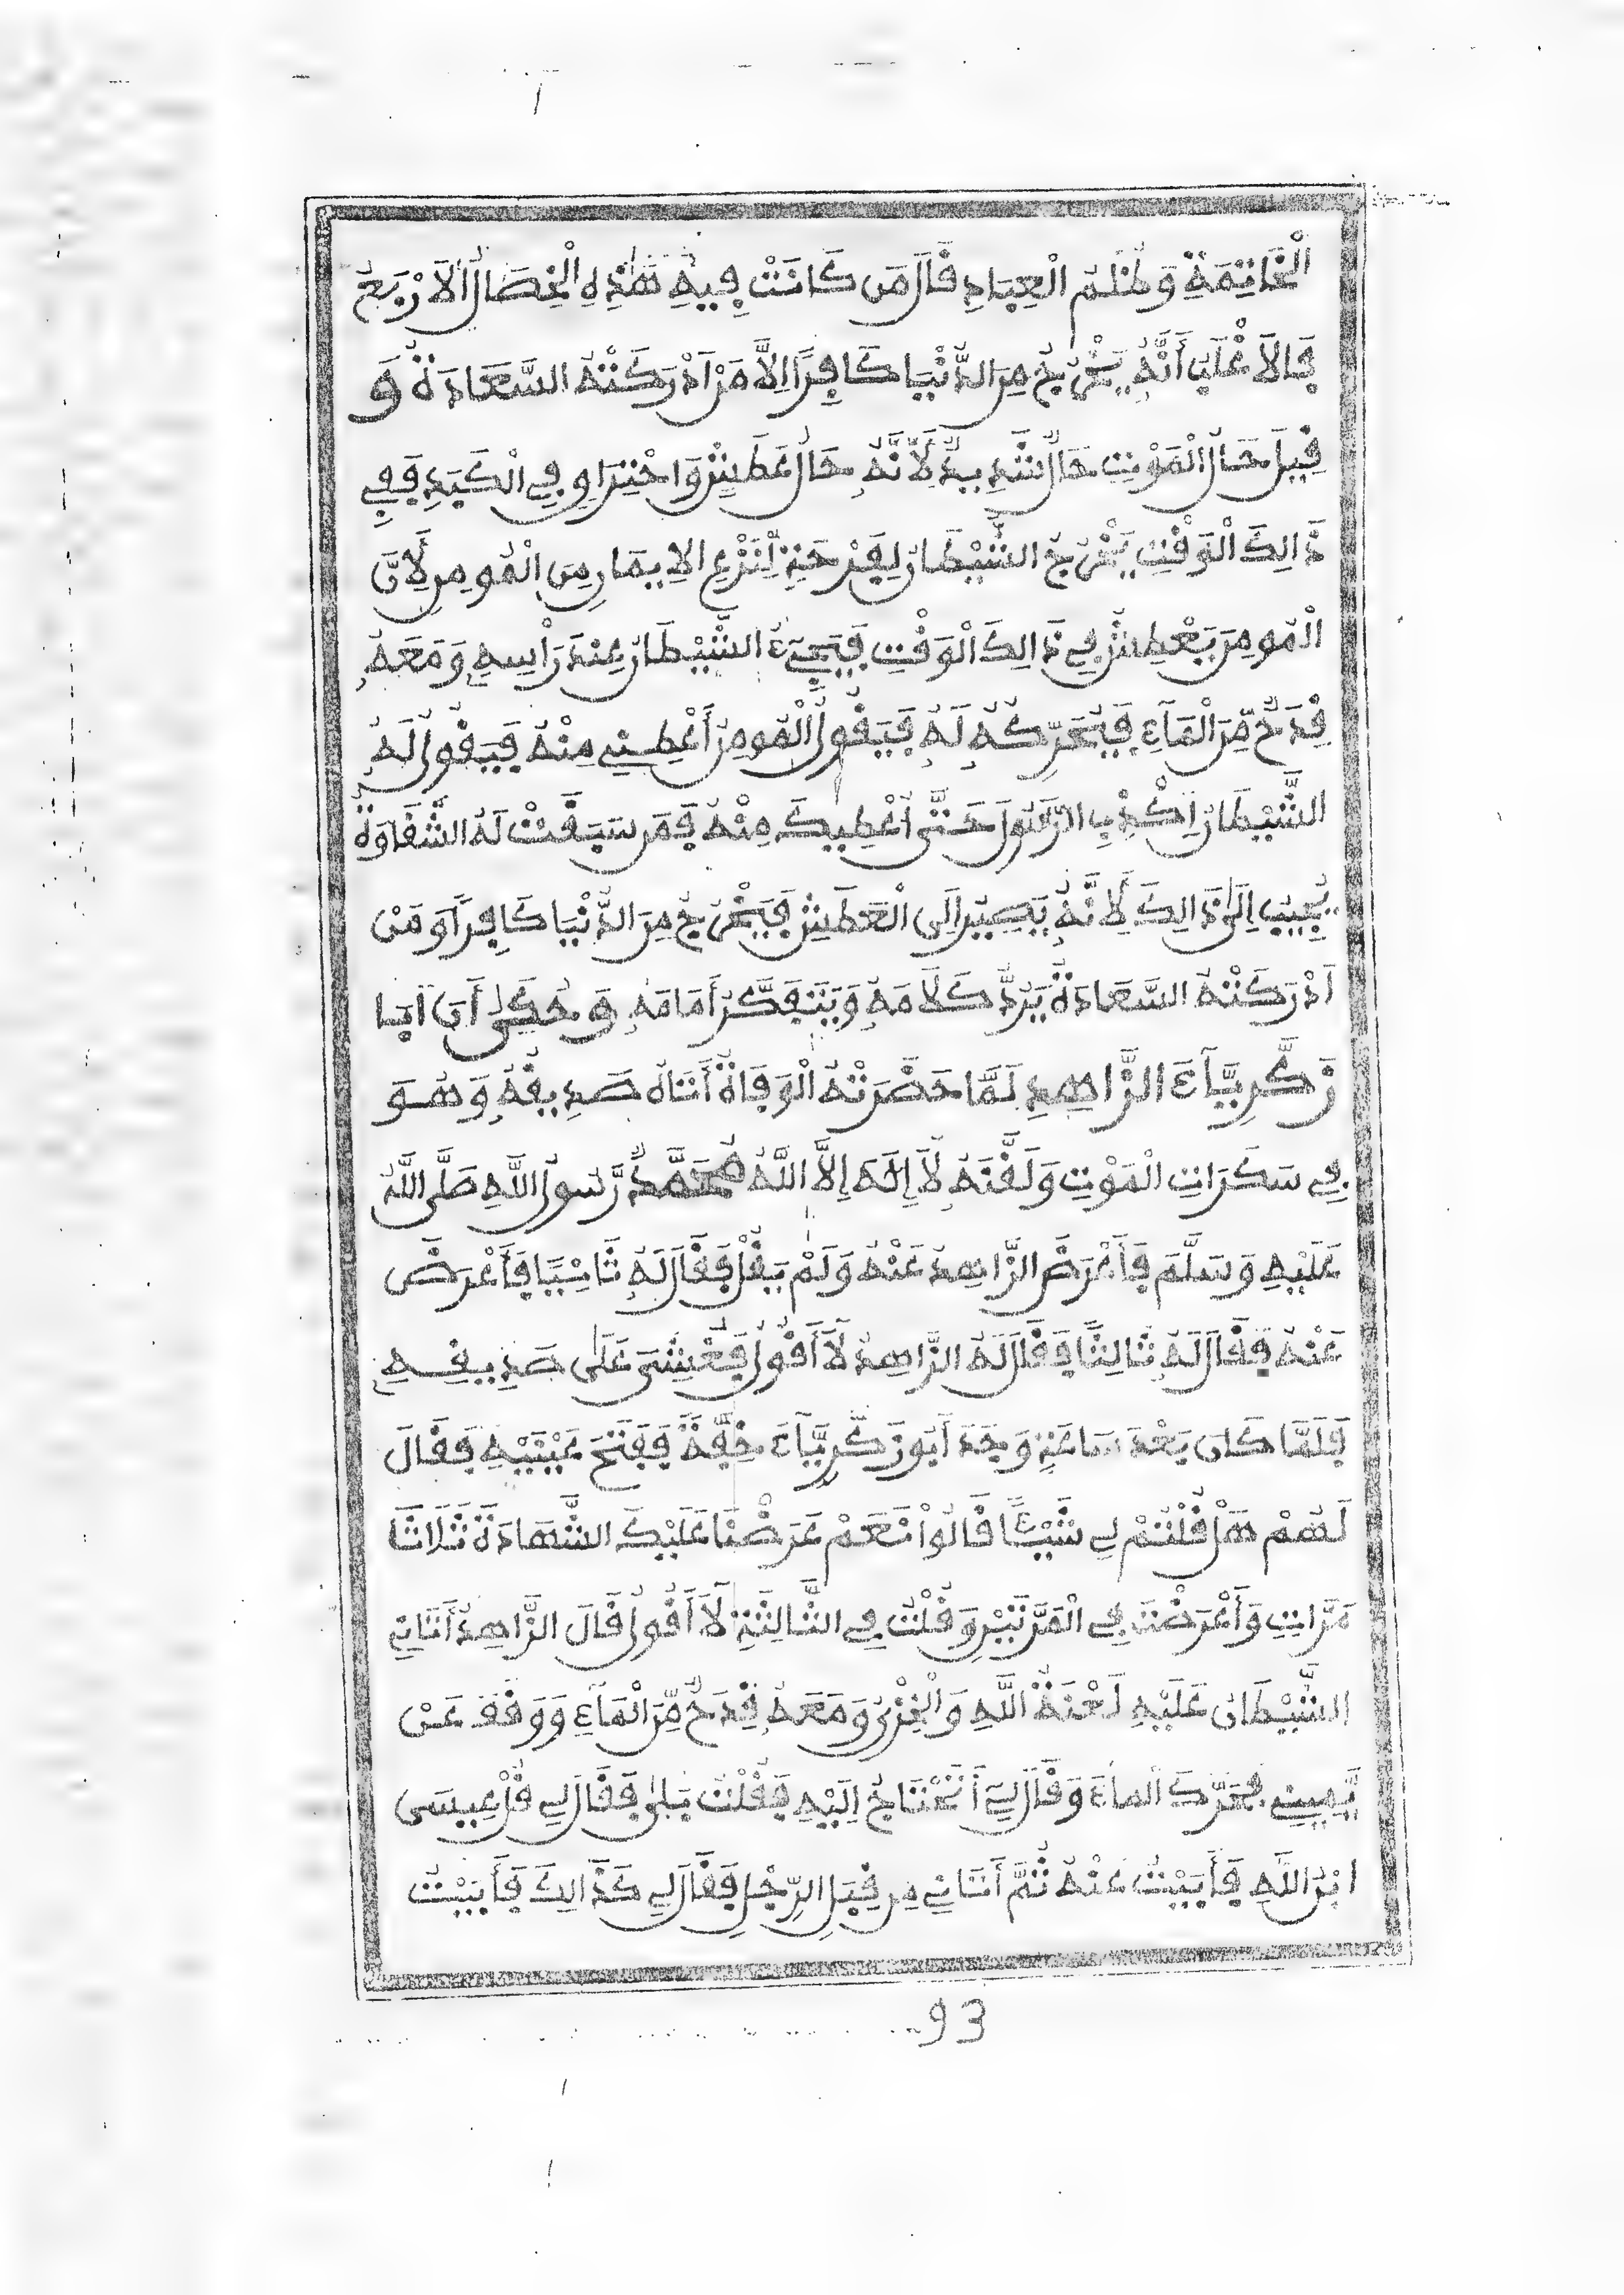 الْخَاتِمَةِ وَظُلْمُ الْعِبَادِ قَالَ مَن كَانَتْ فِيهِ هَٰذِهِ الْخِصَالُ الَارْبَعُ
فَالَاغْلَبُ أَنَّهُ يَخْرُجُ مِنَ الدُّنْيَا كَافِرًا اِلَّا مَنْ اَدْرَكَتْهُ السَّعَادَةُ وَ
قِيلَ حَالُ الْمَوْتِ حَالٌ شَدِيدٌ لِّأَنَّهُ حَالُ عَطَشٍ وَاحْتِرَاقٍ فِي الْكَبِدِ فَفِي
ذَالِكَ الْوَقْتِ يَخْرُجُ الشَّيْطَانُ لِفَرْحَةٍ لِّنَزْعِ الِايمَانِ مِنَ الْمُومِنِ لِأَنَّ
الْمُومِنَ يَعْطِشُ فِي ذَالِكَ الْوَقْتِ فَيَجِيٓءُ الشَّيْطَانُ عِنْدَ رَأْسِهِ وَمَعَهُ
قِدَحٌ مِّنَ الْمَآءِ فَيُحَرِّكُهُ لَهُ فَيَقُولُ الْمُومِنُ أَعْطِنِي مِنْهُ فَيَقُولُ لَهُ
الشَّيْطَانُ اِكْذِبِ الرَّسُولَ حَتَّى أُعْطِيكَ مِنْهُ فَمَن سَبَقَتْ لَهُ الشَّقَاوَةُ
يُجِيبُ اِلَىٰ ذَالِكَ لِأَنَّهُ يَصِيرُ اِلَى الْعَطَشِ فَيَخْرُجُ مِنَ الدُّنْيَا كَافِرًا وَمَنْ
اَدْرَكَتْهُ السَّعَادَةُ يَرُدُّ كَلَامَهُ وَيَتَفَكَّرُ أَمَامَهُ وَحُكِىَ أَنَّ اَبَا
زَكَّرِيَّآءَ الزَّاهِدِ لَمَّا حَضَرَتْهُ الْوَفَاةُ أَتَاهُ صَدِيقُهُ وَهُوَ
فِي سَكَرَاتِ الْمَوْتِ وَلَقَّنَهُ لَآ إِلَٰهَ إِلَّا اللَّهُ مُحَمَّدٌ رَّسُولُ اللَّهِ صَلَّى اللَّهُ
عَلَيْهِ وَسَلَّمَ فَأَعْرَضَ الزَّاهِدُ عَنْهُ وَلَمْ يَقُلْ فَقَالَ لَهُ ثَانِيًا فَأَعْرَضَ
عَنْهُ فَقَالَ لَهُ ثَالِثًا فَقَالَ لَهُ الزَّاهِدُ لَآ أَقُولُ فَغُشِىَ عَلَى صَدِيقِهِ
فَلَمَّا كَانَ بَعْدَ سَاعَةٍ وَجَدَ اَبُو زَكَّرِيَّآءَ خِفَّةً فَفَتَحَ عَيْنَيْهِ فَقَالَ
لَهُمْ هَلْ قُلْتُمْ لِي شَيْئًا قَالُوا نَعَمْ عَرَضْنَا عَلَيْكَ الشَّهَادَةَ ثَلَاثَا
مَرَّاتٍ وَأَعْرَضْتَ فِي الْمَرَّتَيْنِ وَقُلْتَ فِي الثَّالِثَةِ لَآ أَقُولُ قَالَ الزَّاهِدُ أَتَانِي
الشَّيْطَانُ عَلَيْهِ لَعْنَةُ اللَّهِ وَالْخِزْيُ وَمَعَهُ قِدَحٌ مِّنَ الْمَآءِ وَوَقَفَ عَنْ
يَّمِينِي فَحَرَّكَ الْمَآءَ وَقَالَ لِيَ أَتَحْتَاجُ اِلَيْهِ فَقُلْتُ بَلَىٰ فَقَالَ لِي قُلْ عِيسَى
ابْنُ اللَّهِ فَأَبَيْتُ عَنْهُ ثُمَّ أَتَانِي مِن قِبَلِ الرِّجْلِ فَقَالَ لِي كَذَالِكَ فَأَبَيْتُ
93